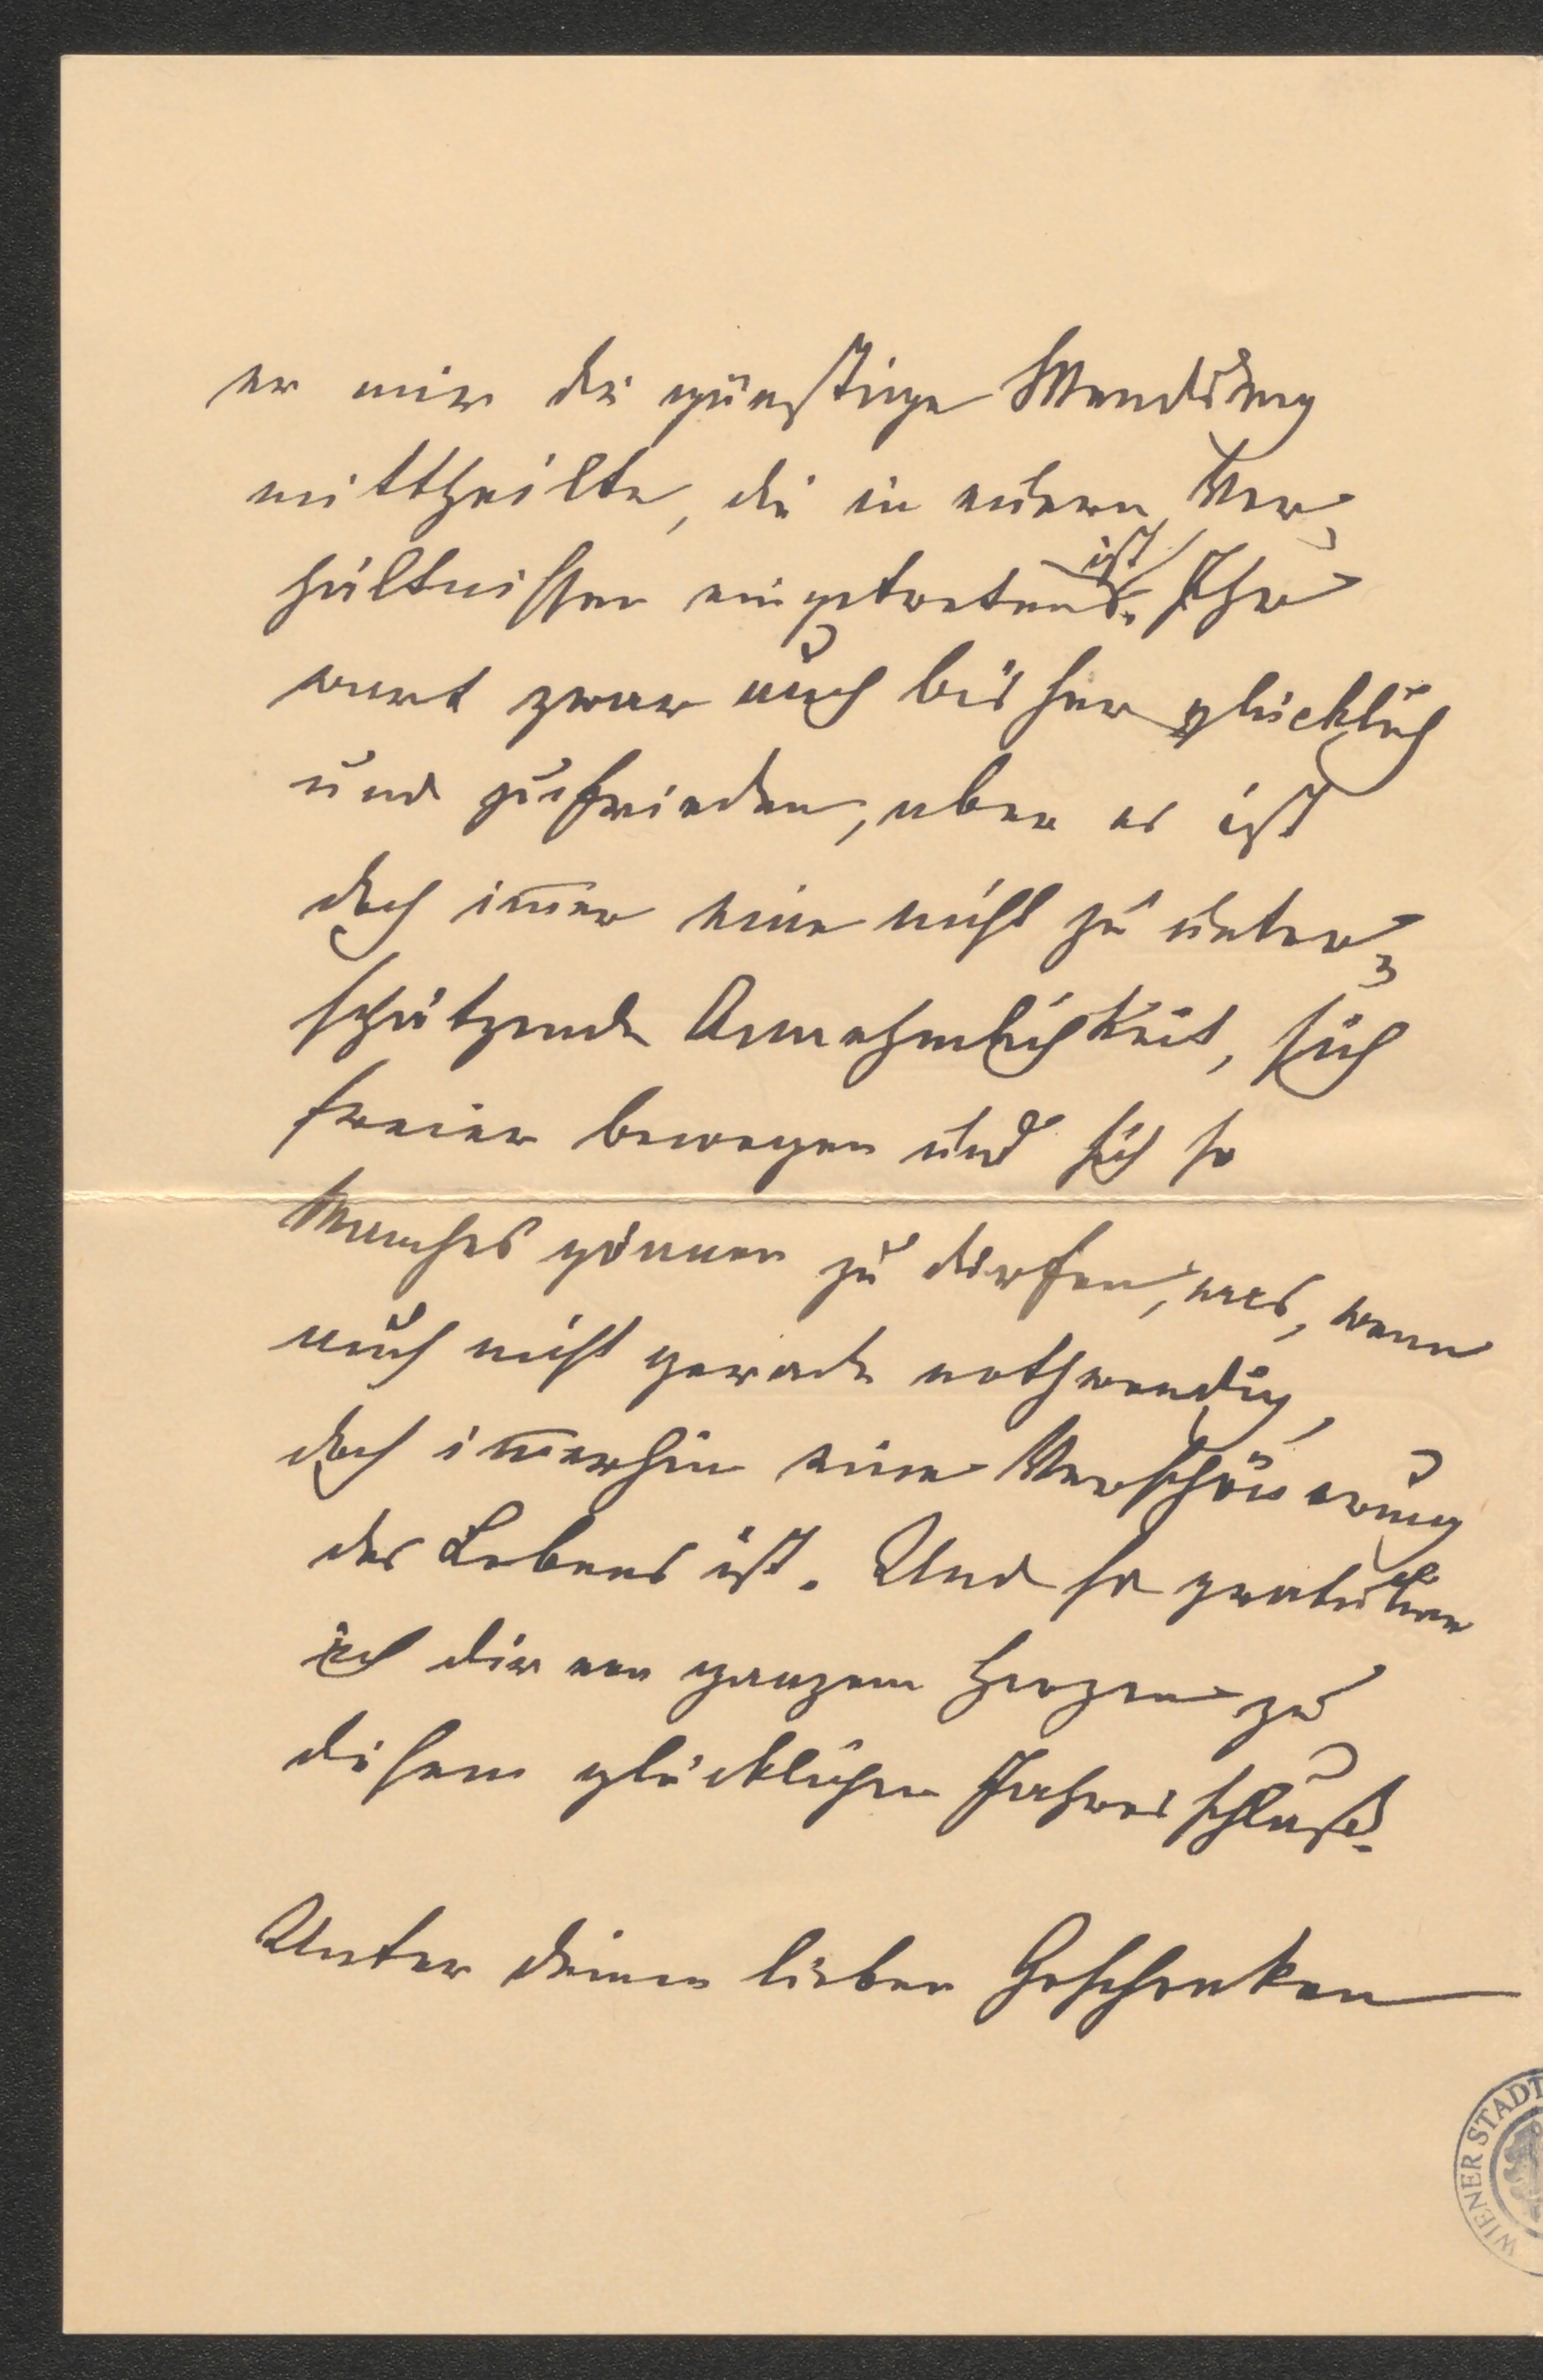 er mir die günstige Wendung
mittheilte, die in euern Ver-
hältnissen eingetreten ist. Ihr
wart zwar auch bisher glücklich
und zufrieden, aber es ist
doch im̅er eine nicht zu unter-
schätzende Annehmlichkeit, sich
freier bewegen und sich so
Manches gönnen zu dürfen, was, wenn
auch nicht gerade nothwendig,
doch im̅erhin eine Verschönerung
des Lebens ist. Und so gratulire
ich dir von ganzem Herzen zu
disem glücklichen Jahresschluß.
Unter deinen lieben Geschenken
WIENER STADT